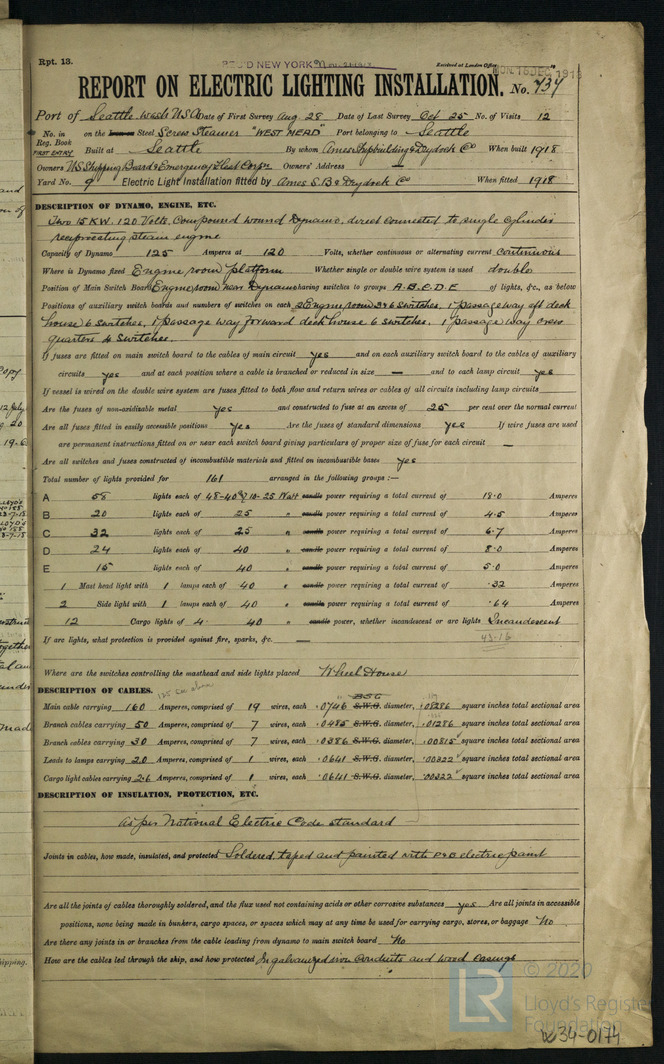 Rpt. 13.
REC'D NEW YORK
Received at London Office
MON. 16 DEC 1918
REPORT ON ELECTRIC LIGHTING INSTALLATION. No. 737
Port of Seattle Wash USA Date of First Survey Aug 28 Date of Last Survey Oct 25 No. of Visits 12
No. in Reg. Book on the Iron or Steel Screw Steamer "WEST MEAD" Port belonging to Seattle
FIRST ENTRY Built at Seattle By whom Ames Shipbuilding & Drydock Co When built 1918
Owners US Shipping Board & Emergency Fleet Corpn Owners' Address —
Yard No. 9 Electric Light Installation fitted by Ames S.B & Drydock Co When fitted 1918
DESCRIPTION OF DYNAMO, ENGINE, ETC.
Two 15 KW. 120 Volts. Compound wound Dynamo, direct connected to single cylinder
reciprocating steam engine
Capacity of Dynamo 125 Amperes at 120 Volts, whether continuous or alternating current Continuous
Where is Dynamo fixed Engine room platform Whether single or double wire system is used double
Position of Main Switch Board Engine room near Dynamo having switches to groups A.B.C.D.E of lights, &c., as below
Positions of auxiliary switch boards and numbers of switches on each 2 Engine room 3 & 6 Switches, 1 passageway aft deck
house 6 Switches, 1 passage way forward deck house 6 switches. 1 passage way crew
quarters 4 Switches.
If fuses are fitted on main switch board to the cables of main circuit yes and on each auxiliary switch board to the cables of auxiliary
circuits yes and at each position where a cable is branched or reduced in size — and to each lamp circuit yes
If vessel is wired on the double wire system are fuses fitted to both flow and return wires or cables of all circuits including lamp circuits
Are the fuses of non-oxidizable metal yes and constructed to fuse at an excess of 25 per cent over the normal current
Are all fuses fitted in easily accessible positions yes Are the fuses of standard dimensions yes If wire fuses are used
are permanent instructions fitted on or near each switch board giving particulars of proper size of fuse for each circuit —
Are all switches and fuses constructed of incombustible materials and fitted on incombustible bases yes
Total number of lights provided for 161 arranged in the following groups :—
A 58 lights each of 48-40 & 10-25 Watt candle power requiring a total current of 18.0 Amperes
B 20 lights each of 25 " candle power requiring a total current of 4.5 Amperes
C 32 lights each of 25 " candle power requiring a total current of 6.7 Amperes
D 24 lights each of 40 " candle power requiring a total current of 8.0 Amperes
E 15 lights each of 40 " candle power requiring a total current of 5.0 Amperes
1 Mast head light with 1 lamps each of 40 " candle power requiring a total current of .32 Amperes
2 Side light with 1 lamps each of 40 " candle power requiring a total current of .64 Amperes
12 Cargo lights of 4. 40 " candle power, whether incandescent or arc lights Incandescent
If arc lights, what protection is provided against fire, sparks, &c. — 43.16
Where are the switches controlling the masthead and side lights placed Wheel House
DESCRIPTION OF CABLES.
Main cable carrying 160 Amperes, comprised of 19 wires, each .0746 S.W.G. diameter, .08286 square inches total sectional area
Branch cables carrying 50 Amperes, comprised of 7 wires, each .0485 S.W.G. diameter, .01286 square inches total sectional area
Branch cables carrying 30 Amperes, comprised of 7 wires, each .0386 S.W.G. diameter, .00815 square inches total sectional area
Leads to lamps carrying 20 Amperes, comprised of 1 wires, each .0641 S.W.G. diameter, .00322 square inches total sectional area
Cargo light cables carrying 2.6 Amperes, comprised of 1 wires, each .0641 S.W.G. diameter, .00322 square inches total sectional area
DESCRIPTION OF INSULATION, PROTECTION, ETC.
as per National Electric Code standard
Joints in cables, how made, insulated, and protected Soldered, taped and painted with P&B electric paint
Are all the joints of cables thoroughly soldered, and the flux used not containing acids or other corrosive substances yes Are all joints in accessible
positions, none being made in bunkers, cargo spaces, or spaces which may at any time be used for carrying cargo, stores, or baggage No
Are there any joints in or branches from the cable leading from dynamo to main switch board No
How are the cables led through the ship, and how protected In galvanized iron conduits and wood casings
LR © 2020
Lloyd's Register
Foundation
W34-0174